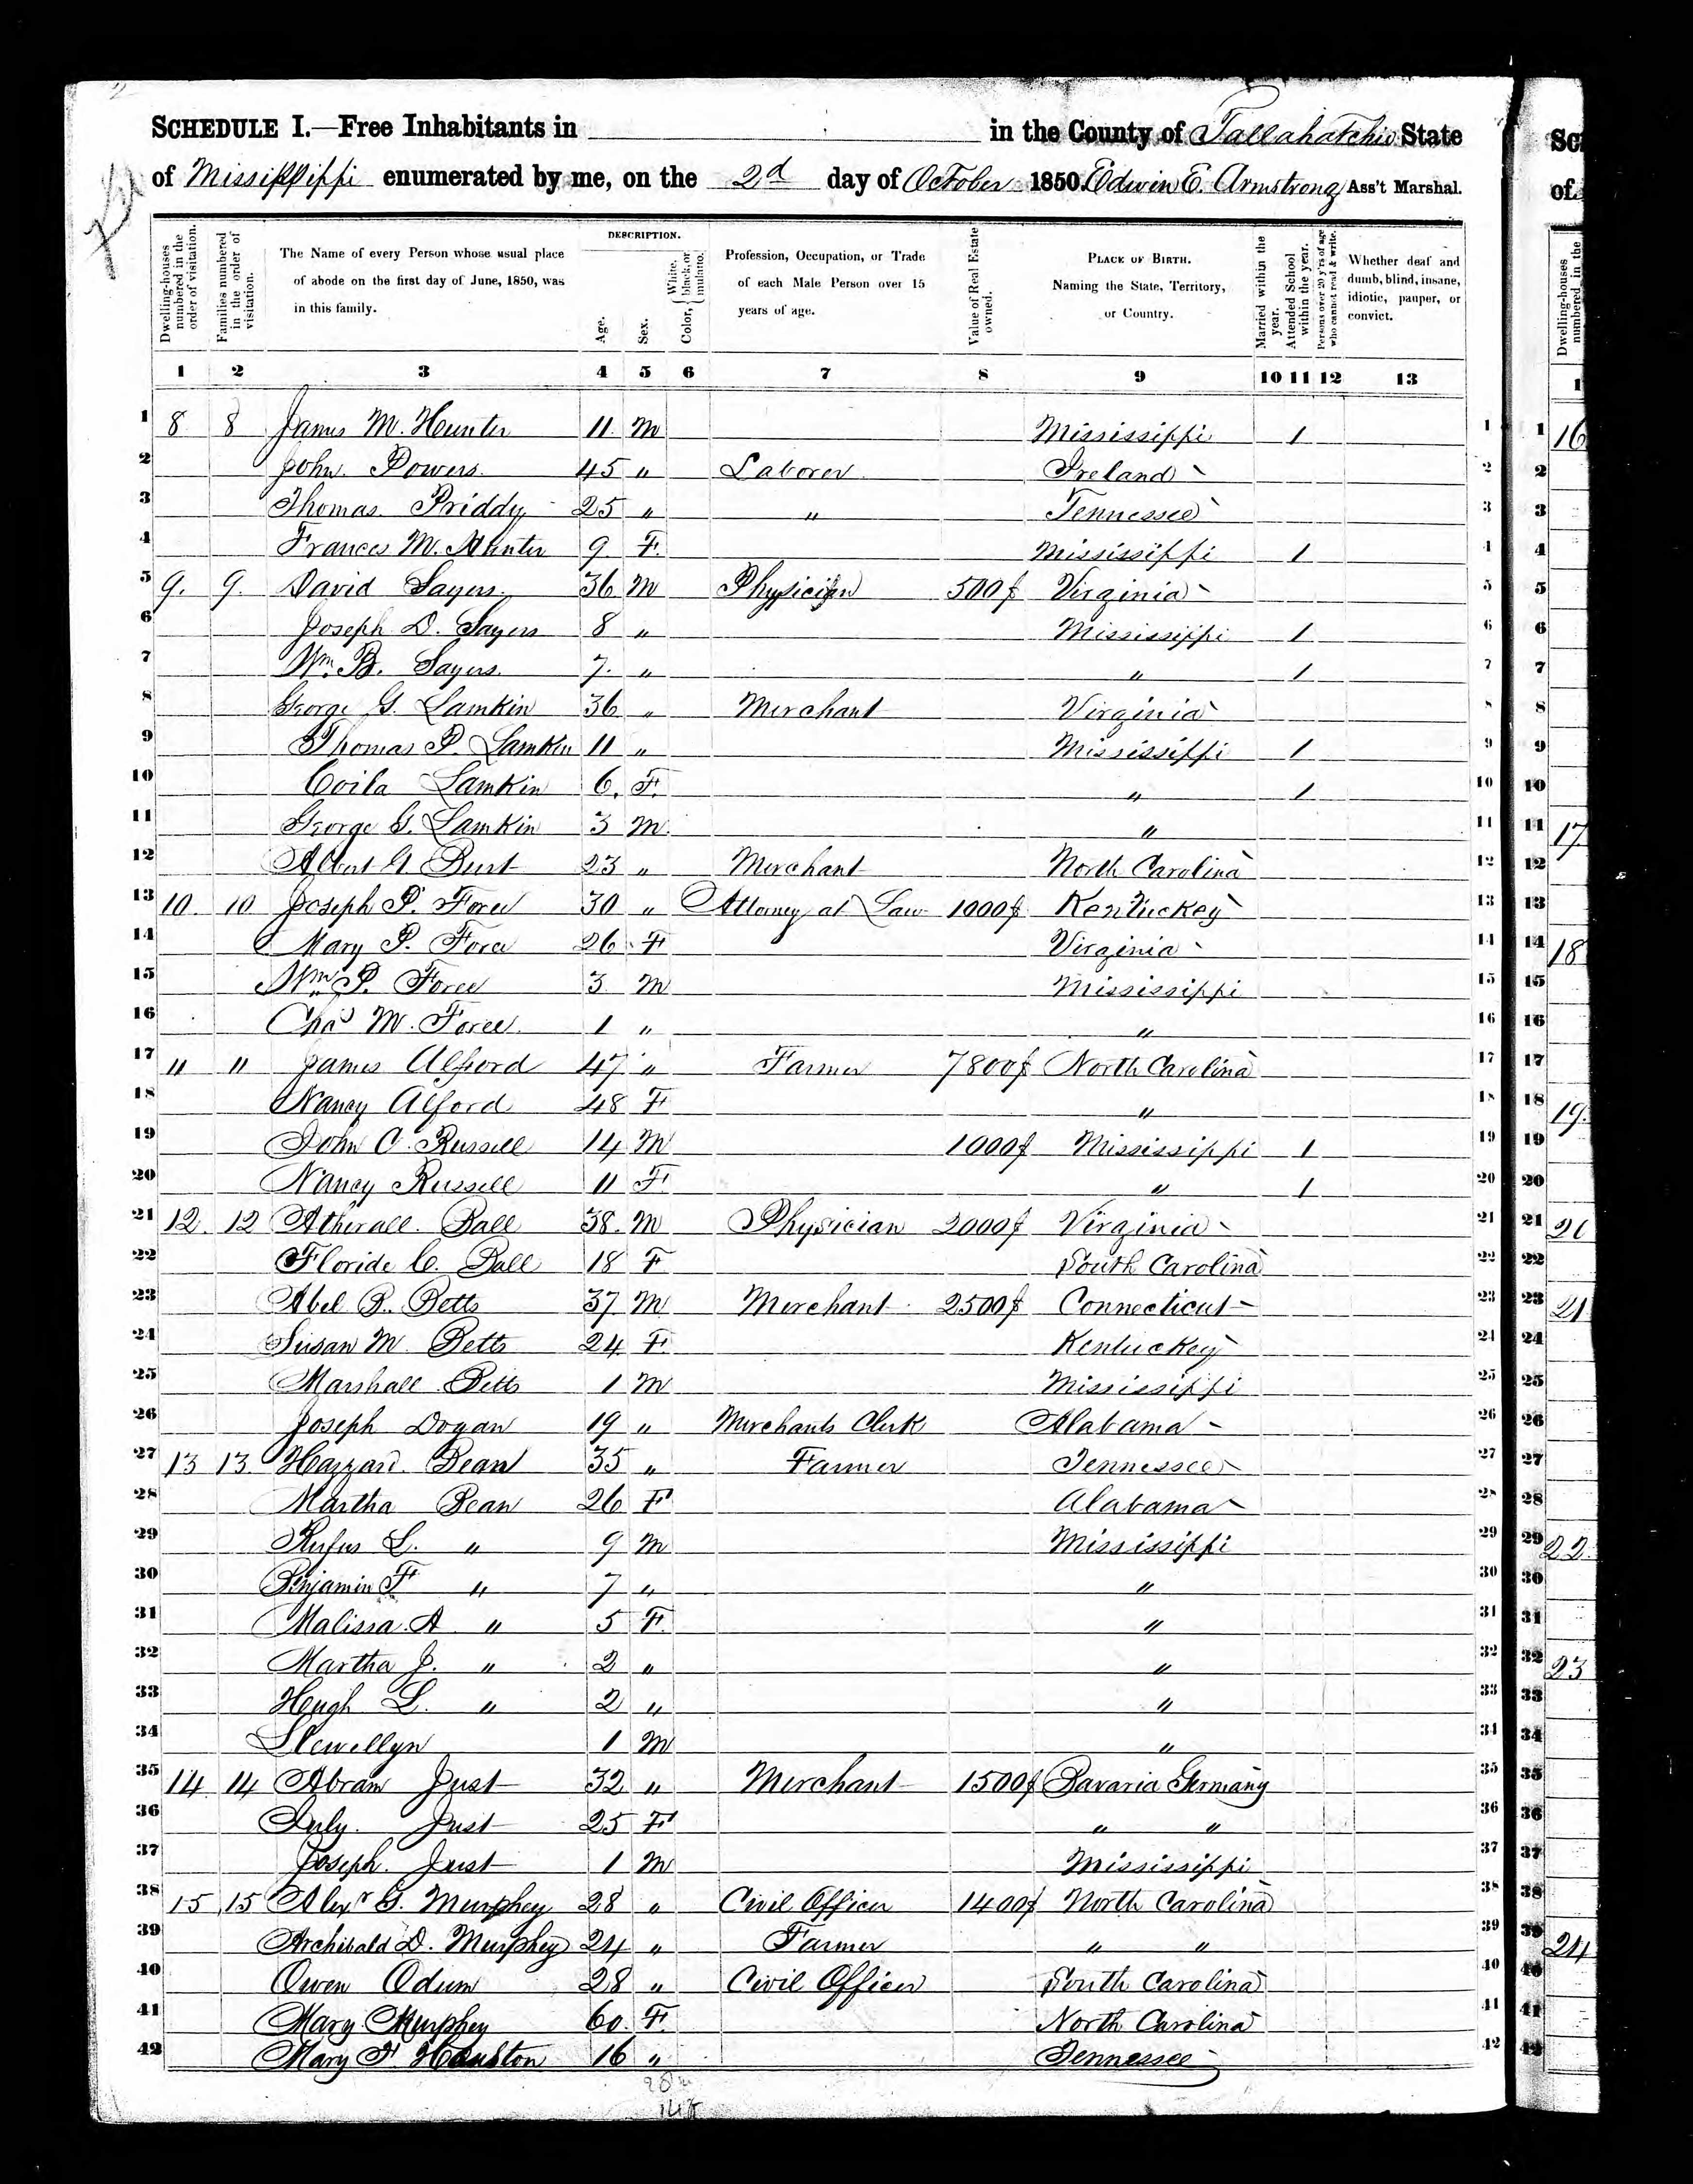 SCHEDULE I.—Free Inhabitants in in the County of Tallahatchie State
of Mississippi enumerated by me, on the 2d day of October 1850. Edwin E. Armstrong Ass't Marshal.
Dwelling-houses numbered in the order of visitation.
Families numbered in the order of visitation.
The Name of every Person whose usual place of abode on the first day of June, 1850, was in this family.
DESCRIPTION.
Age.
Sex.
Color, { White, black, or mulatto.
Profession, Occupation, or Trade of each Male Person over 15 years of age.
Value of Real Estate owned.
PLACE OF BIRTH. Naming the State, Territory, or Country.
Married within the year.
Attended School within the year.
Persons over 20 y'rs of age who cannot read & write.
Whether deaf and dumb, blind, insane, idiotic, pauper, or convict.
1 2 3 4 5 6 7 8 9 10 11 12 13
1 8 8 James M. Hunter 11 M Mississippi 1 1
2 John Powers 45 " Laborer Ireland 2
3 Thomas Priddy 25 " " Tennessee 3
4 Frances M. Hunter 9 F. Mississippi 1 4
5 9. 9. David Sayers 36 M Physician 500$ Virginia 5
6 Joseph D. Sayers 8 " Mississippi 1 6
7 Wm. B. Sayers 7. " " 1 7
8 George G. Lamkin 36 " Merchant Virginia 8
9 Thomas P. Lamkin 11 " Mississippi 1 9
10 Coila Lamkin 6. F. " 1 10
11 George G. Lamkin 3 M. " 11
12 Albert G. Burt 23 " Merchant North Carolina 12
13 10. 10 Joseph P. Force 30 " Attorney at Law 1000$ Kentucky 13
14 Mary P. Force 26 F Virginia 14
15 Wm P. Force 3 M Mississippi 15
16 Chas M. Force 1 " " 16
17 " " James Alford 47 " Farmer 7800$ North Carolina 17
18 Nancy Alford 48 F " 18
19 John C. Russell 14 M 1000$ Mississippi 1 19
20 Nancy Russell 11 F. " 1 20
21 12. 12 Atherall Ball 38. M Physician 2000$ Virginia 21
22 Floride C. Ball 18 F South Carolina 22
23 Abel B. Betts 37 M Merchant 2500$ Connecticut 23
24 Susan M. Betts 24 F. Kentuckey 24
25 Marshall Betts 1 M Mississippi 25
26 Joseph Dogan 19 " Merchants Clerk Alabama 26
27 13 13. Hazzard Bean 35 " Farmer Tennessee 27
28 Martha Bean 26 F Alabama 28
29 Rufus L. " 9 M Mississippi 29
30 Benjamin F " 7 " " 30
31 Malissa A " 5 F. " 31
32 Martha J. " 2 " " 32
33 Hugh L. " 2 " " 33
34 Llewellyn 1 M " 34
35 14 14 Abram Just 32 " Merchant 1500$ Bavaria Germany 35
36 July Just 25 F " " 36
37 Joseph Just 1 M Mississippi 37
38 15 15 Alexr G. Murphey 28 " Civil Officer 1400$ North Carolina 38
39 Archibald D. Murphey 24 " Farmer " " 39
40 Owen Odum 28 " Civil Officer South Carolina 40
41 Mary Murphey 60. F. North Carolina 41
42 Mary F. Houston 16 " Tennessee 42